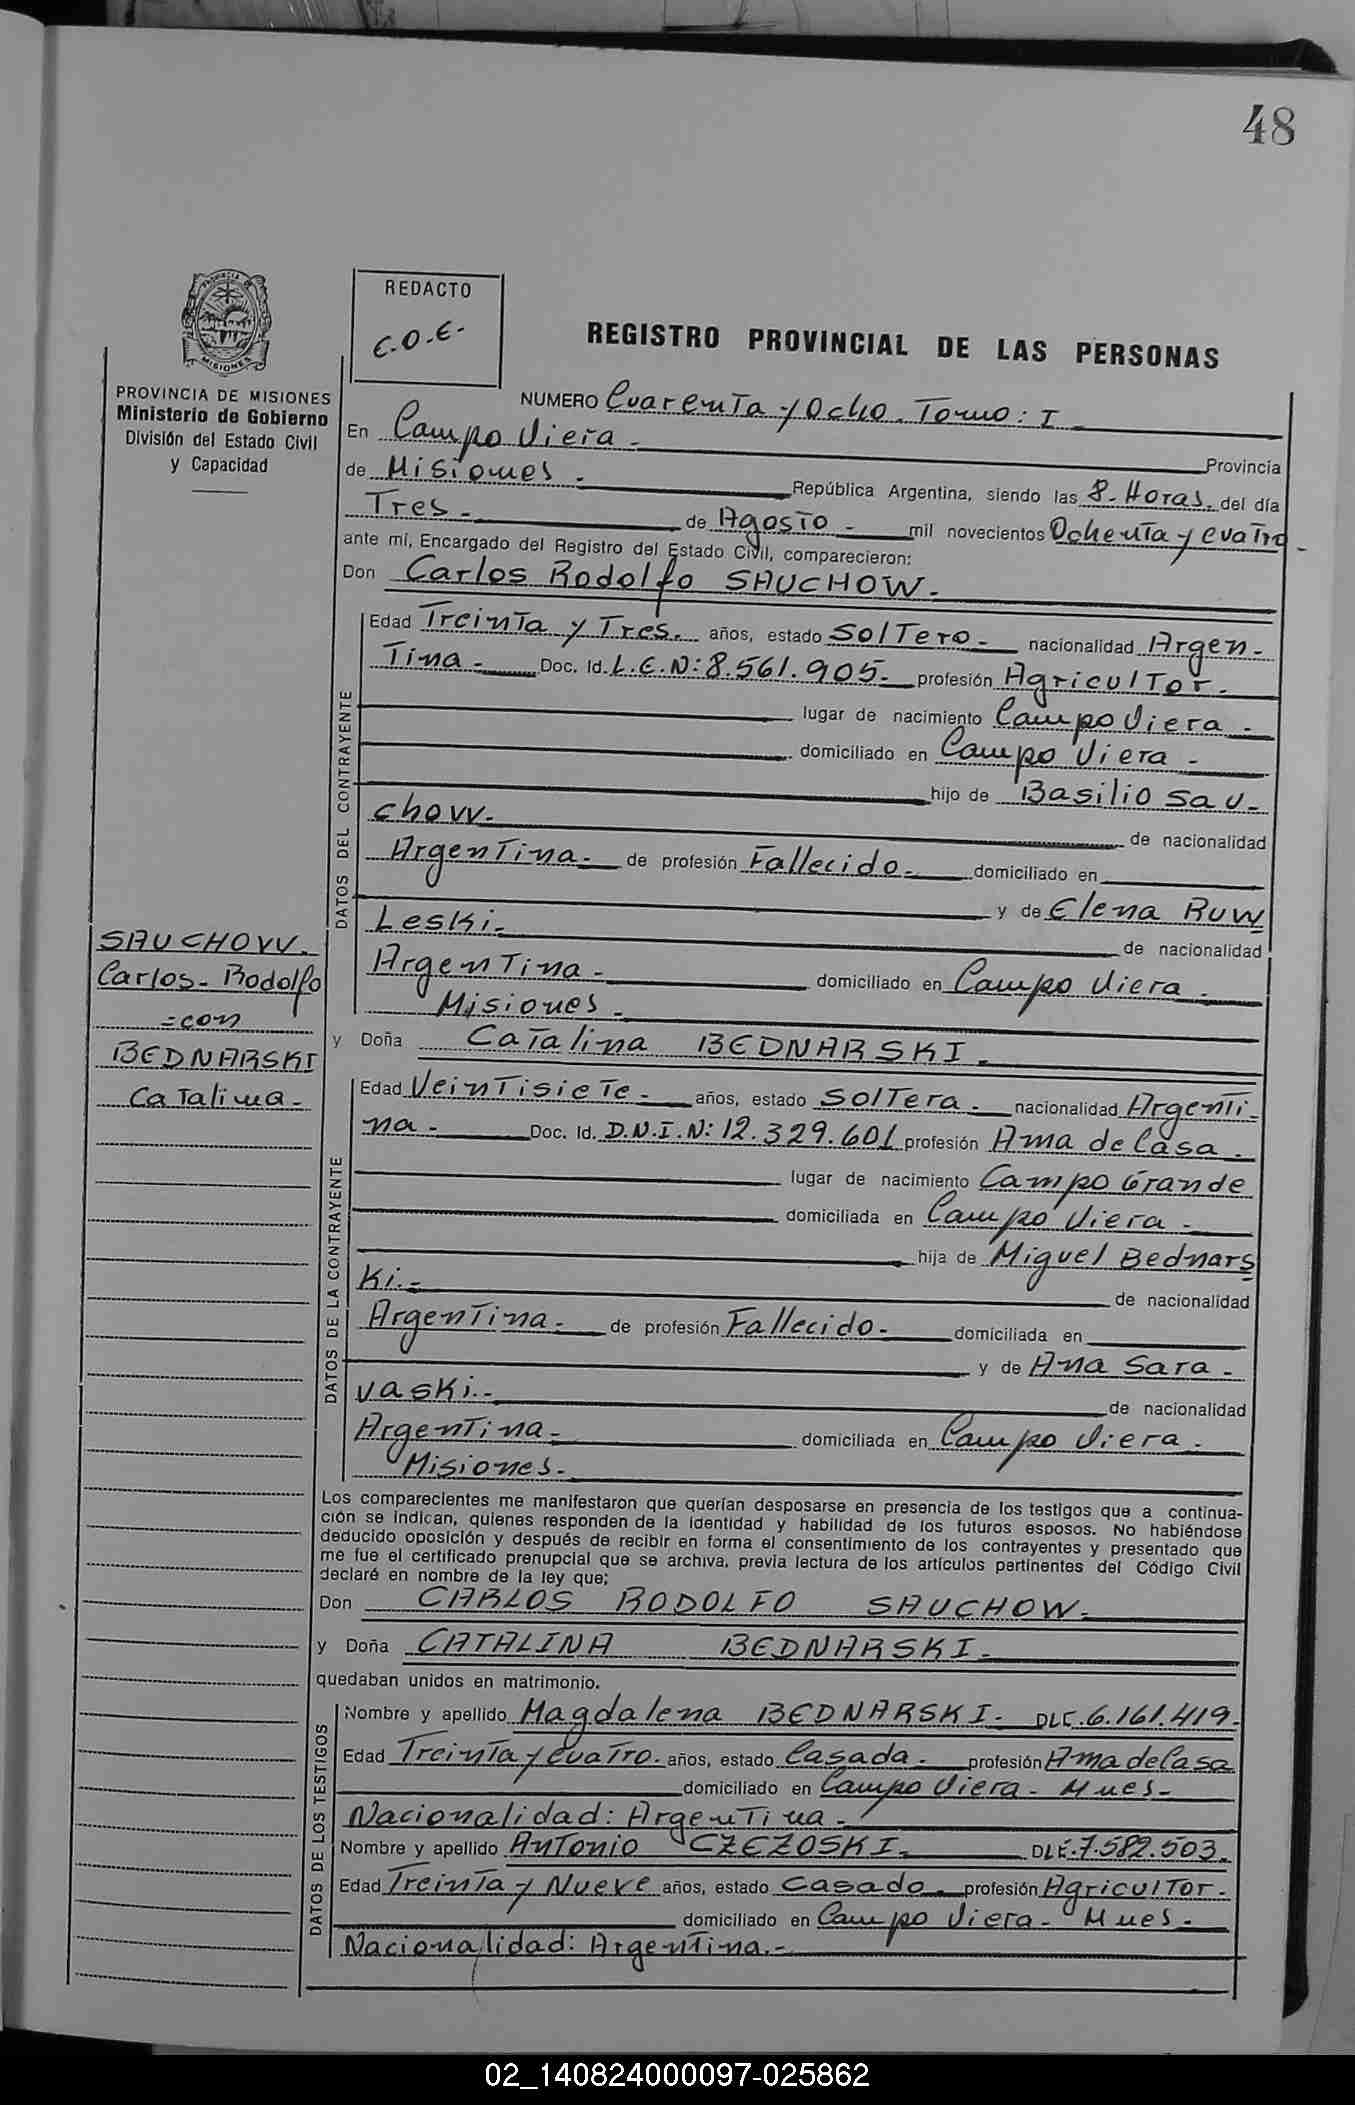 48
PROVINCIA DE MISIONES
Ministerio de Gobierno
División del Estado Civil
y Capacidad
REDACTO
C.O.E.-
REGISTRO PROVINCIAL DE LAS PERSONAS
NUMERO Cuarenta y Ocho. Tomo: I
En Campo Viera - Provincia
de Misiones - República Argentina, siendo las 8-Horas. del día
Tres - de Agosto - mil novecientos Ochenta y cuatro -
ante mí, Encargado del Registro del Estado Civil, comparecieron:
Don Carlos Rodolfo SAUCHOW.
DATOS DEL CONTRAYENTE
Edad Treinta y Tres. años, estado Soltero - nacionalidad Argen-
Tina - Doc. Id. L.E.N: 8.561.905- profesión Agricultor.
lugar de nacimiento Campo Viera -
domiciliado en Campo Viera -
hijo de Basilio Sau-
chow. de nacionalidad
Argentina - de profesión Fallecido - domiciliado en
y de Elena Ruw
Leski. de nacionalidad
Argentina - domiciliado en Campo Viera -
Misiones -
SAUCHOW.
Carlos- Rodolfo
=con
BEDNARSKI
Catalina -
y Doña Catalina BEDNARSKI.
DATOS DE LA CONTRAYENTE
Edad Veintisiete - años, estado Soltera - nacionalidad Argenti-
na - Doc. Id. D.N.I.N: 12.329.601 profesión Ama de Casa.
lugar de nacimiento Campo Grande
domiciliada en Campo Viera -
hija de Miguel Bednars
Ki.- de nacionalidad
Argentina - de profesión Fallecido - domiciliada en
y de Ana Sara -
vaski.- de nacionalidad
Argentina - domiciliada en Campo Viera -
Misiones -
Los comparecientes me manifestaron que querían desposarse en presencia de los testigos que a continua-
ción se indican, quienes responden de la identidad y habilidad de los futuros esposos. No habiéndose
deducido oposición y después de recibir en forma el consentimiento de los contrayentes y presentado que
me fue el certificado prenupcial que se archiva, previa lectura de los artículos pertinentes del Código Civil
declaré en nombre de la ley que;
Don CARLOS RODOLFO SAUCHOW.
y Doña CATALINA BEDNARSKI.
quedaban unidos en matrimonio.
DATOS DE LOS TESTIGOS
Nombre y apellido Magdalena BEDNARSKI - DLC. 6.161.419-
Edad Treinta y cuatro. años, estado Casada - profesión Ama de Casa
domiciliado en Campo Viera - Mnes -
Nacionalidad: Argentina -
Nombre y apellido Antonio CZEZOSKI. DLE. 7.582.503.
Edad Treinta y Nueve años, estado Casado. profesión Agricultor -
domiciliado en Campo Viera - Mnes -
Nacionalidad: Argentina.-
02_140824000097-025862